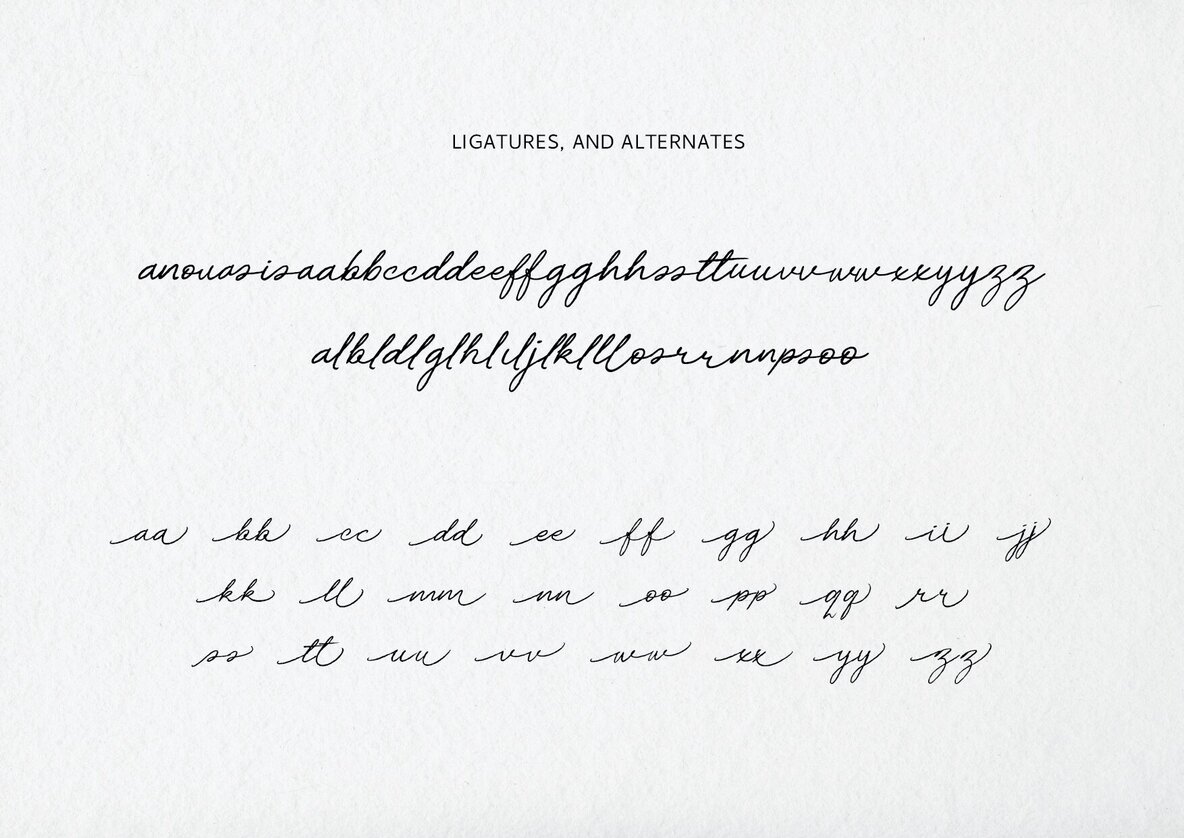 LIGATURES, AND ALTERNATES
anouasisaabbccddeeffgghhssttuuvvwwxxyyzz
albldlglhliljlklllosrrnnpsoo
aa bb cc dd ee ff gg hh ii jj
kk ll mm nn oo pp qq rr
ss tt uu vv ww xx yy zz